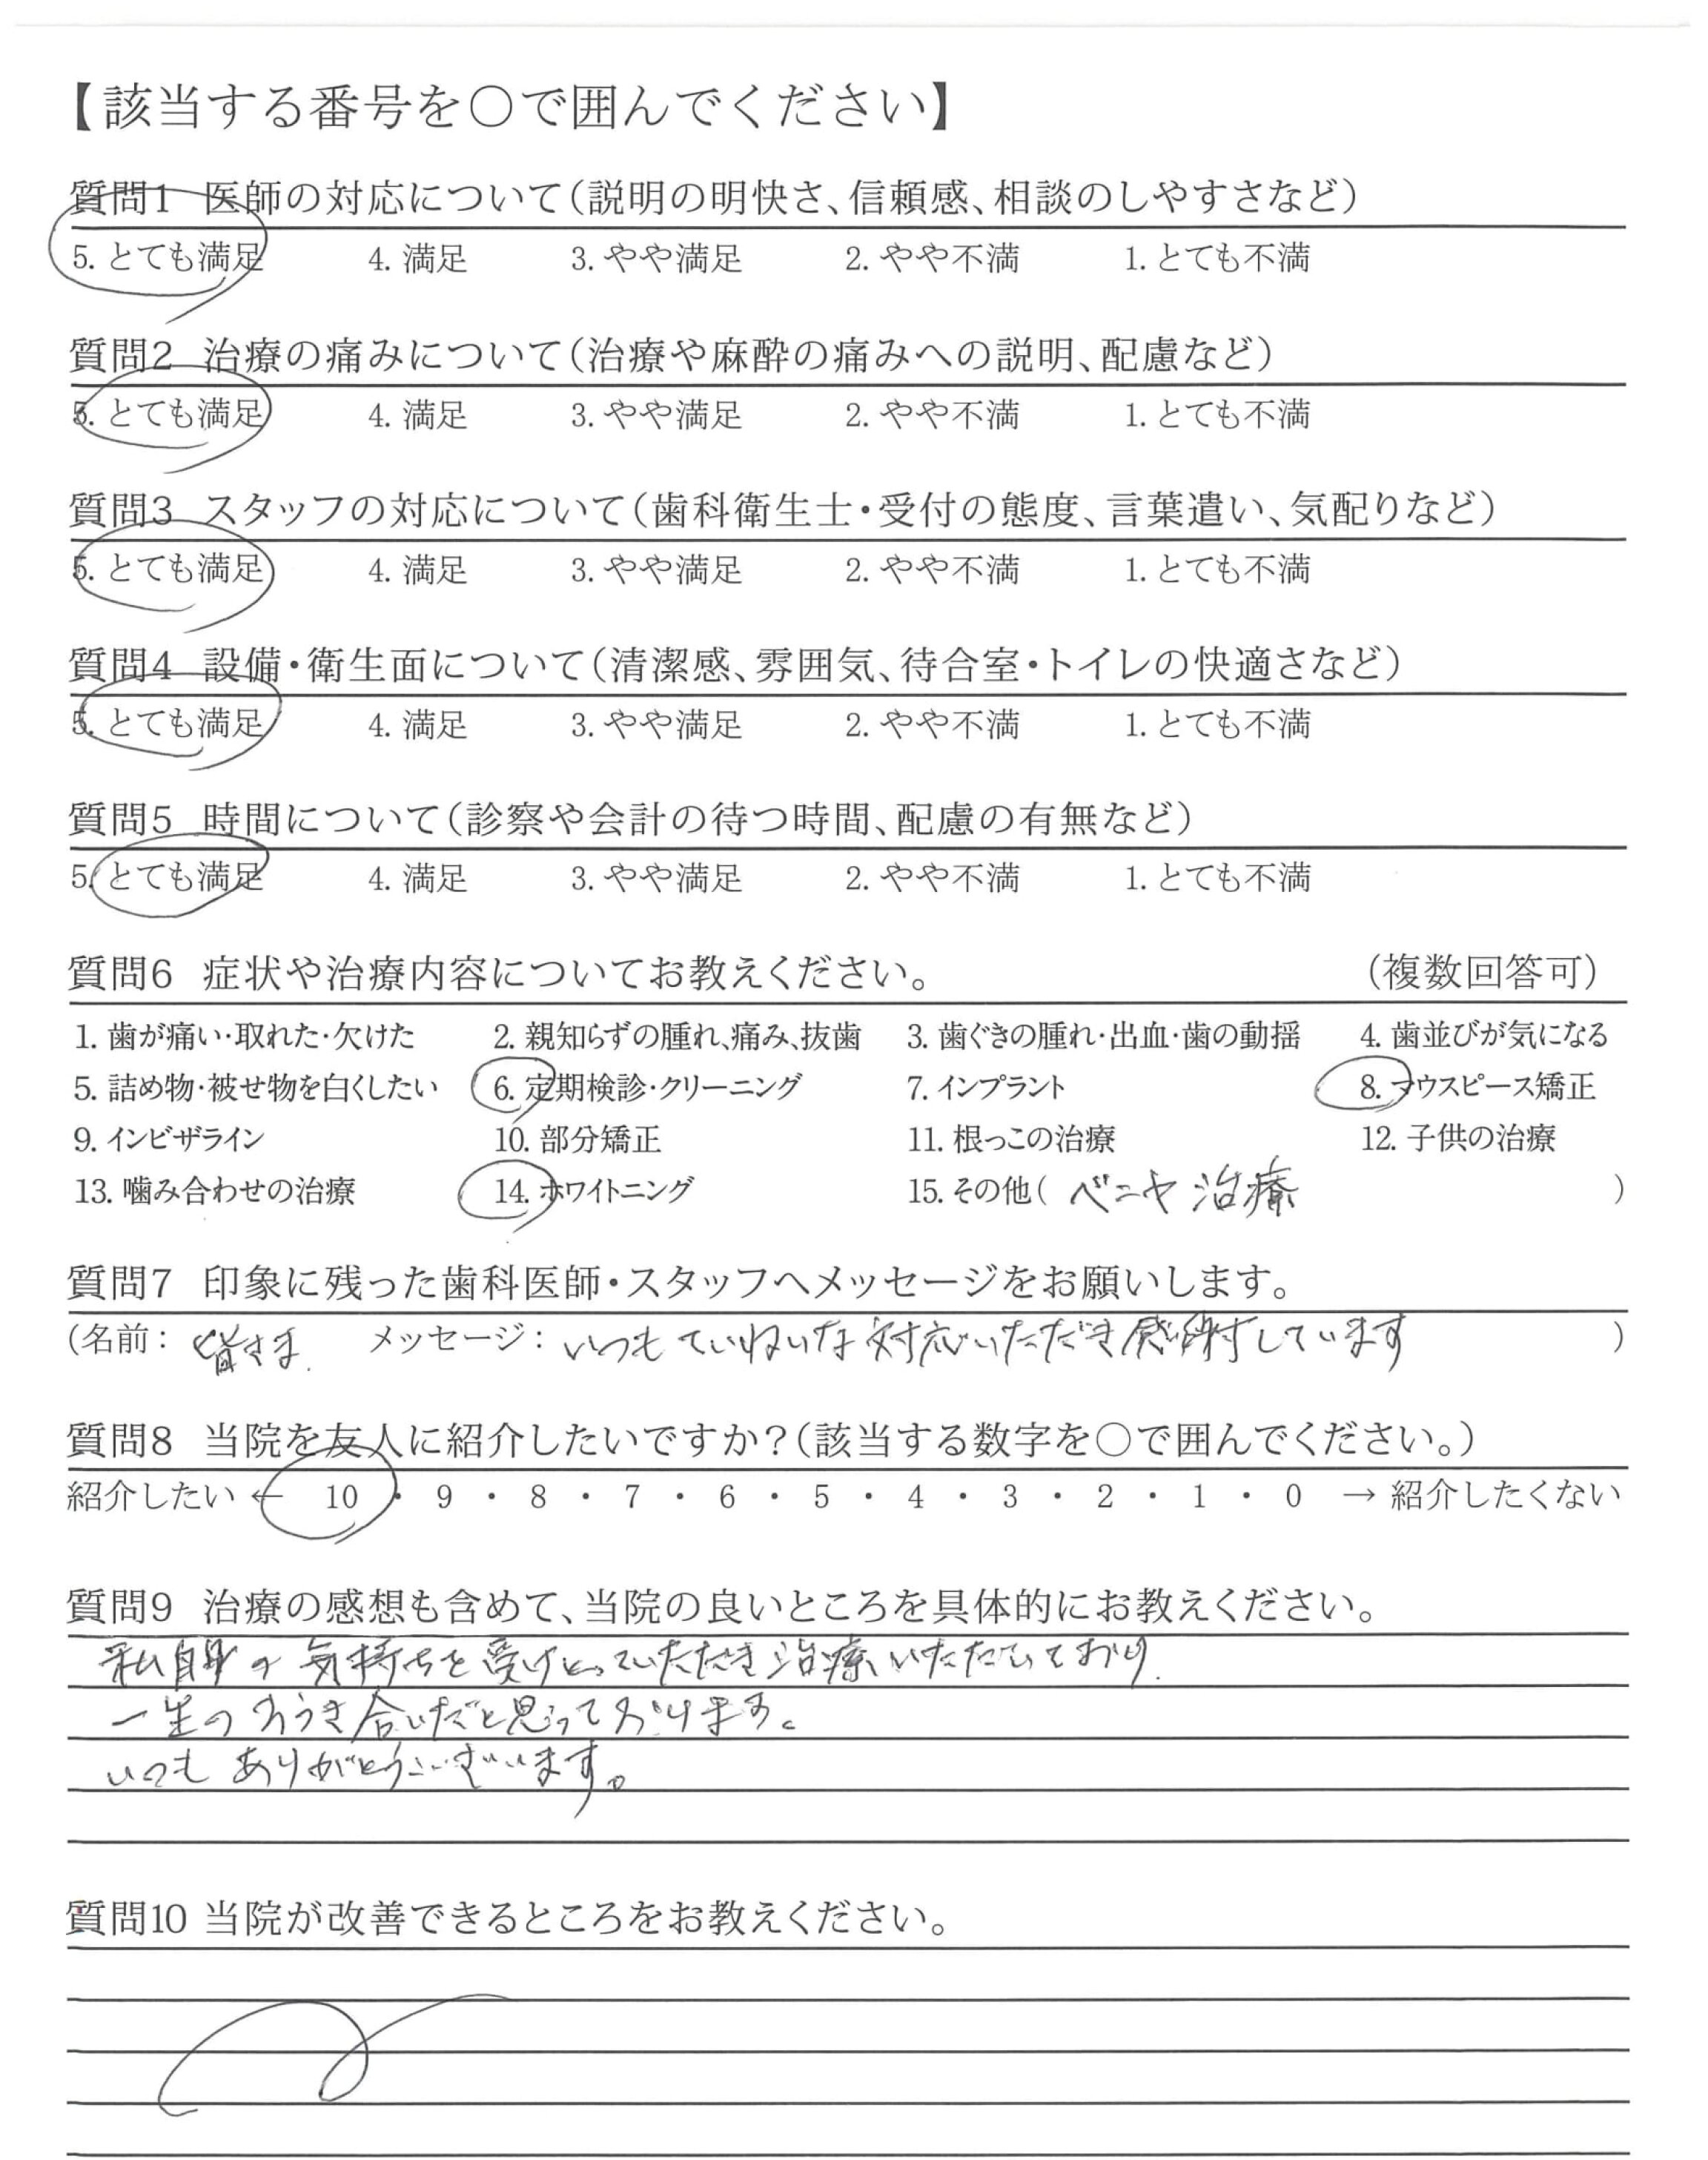 【該当する番号を○で囲んでください】
質問1 医師の対応について(説明の明快さ、信頼感、相談のしやすさなど)
5. とても満足 4. 満足 3. やや満足 2. やや不満 1. とても不満
質問2 治療の痛みについて(治療や麻酔の痛みへの説明、配慮など)
5. とても満足 4. 満足 3. やや満足 2. やや不満 1. とても不満
質問3 スタッフの対応について(歯科衛生士・受付の態度、言葉遣い、気配りなど)
5. とても満足 4. 満足 3. やや満足 2. やや不満 1. とても不満
質問4 設備・衛生面について(清潔感、雰囲気、待合室・トイレの快適さなど)
5. とても満足 4. 満足 3. やや満足 2. やや不満 1. とても不満
質問5 時間について(診察や会計の待つ時間、配慮の有無など)
5. とても満足 4. 満足 3. やや満足 2. やや不満 1. とても不満
質問6 症状や治療内容についてお教えください。 (複数回答可)
1. 歯が痛い・取れた・欠けた 2. 親知らずの腫れ、痛み、抜歯 3. 歯ぐきの腫れ・出血・歯の動揺 4. 歯並びが気になる
5. 詰め物・被せ物を白くしたい 6. 定期検診・クリーニング 7. インプラント 8. マウスピース矯正
9. インビザライン 10. 部分矯正 11. 根っこの治療 12. 子供の治療
13. 噛み合わせの治療 14. ホワイトニング 15. その他( ベニヤ治療 )
質問7 印象に残った歯科医師・スタッフへメッセージをお願いします。
(名前: 皆さま. メッセージ: いつもていねいな対応いただき感謝しています )
質問8 当院を友人に紹介したいですか?(該当する数字を○で囲んでください。)
紹介したい ← 10 ・ 9 ・ 8 ・ 7 ・ 6 ・ 5 ・ 4 ・ 3 ・ 2 ・ 1 ・ 0 → 紹介したくない
質問9 治療の感想も含めて、当院の良いところを具体的にお教えください。
私自身の気持ちを受けとっていただき治療いただいており.
一生のおつき合いだと思っております。
いつもありがとうございます。
質問10 当院が改善できるところをお教えください。